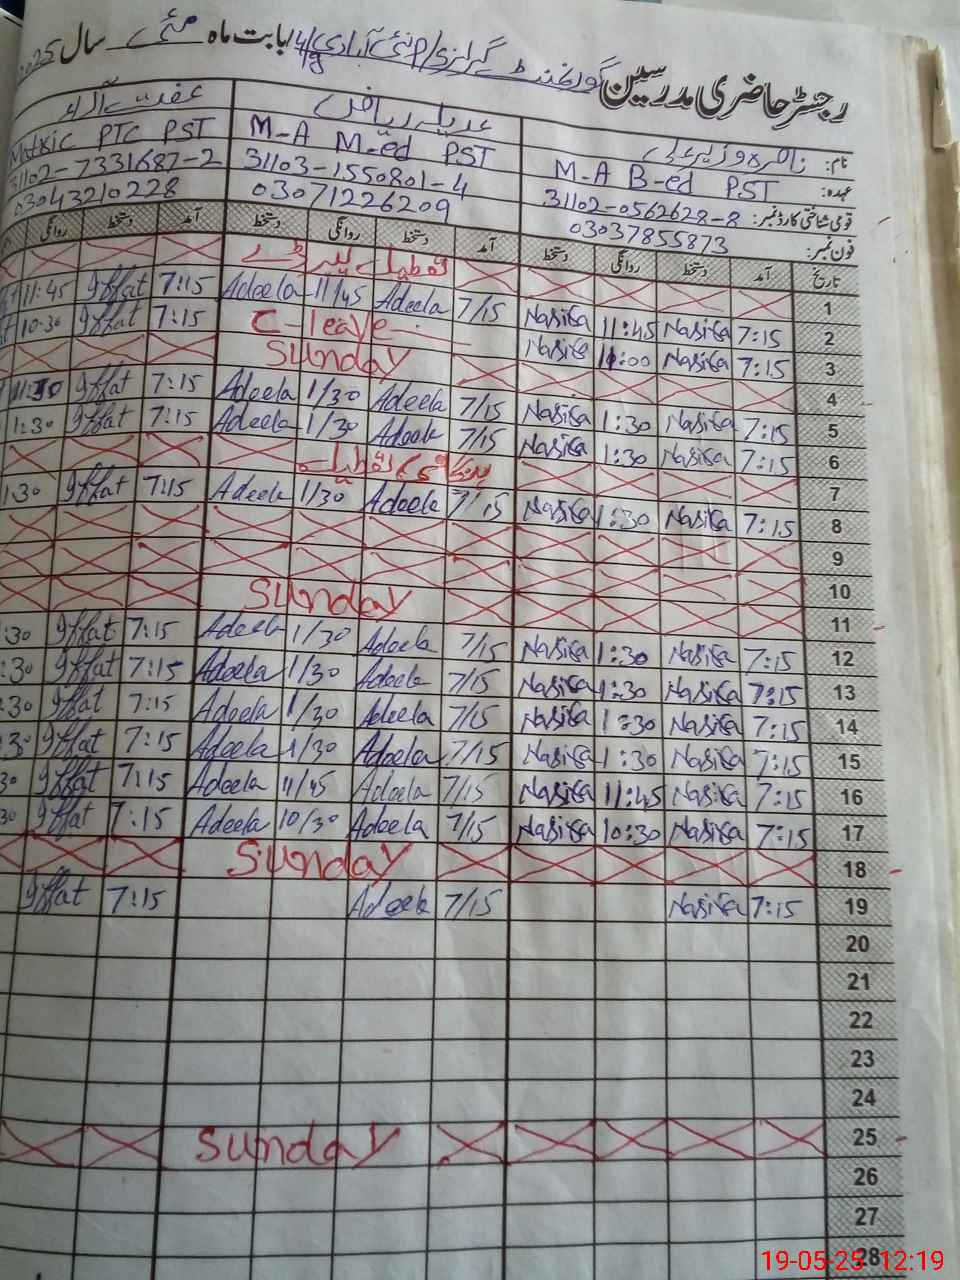 رجسٹر حاضری مدرسین گورنمنٹ گرلز بابت ماہ مئی سال 2025
نام:
عہدہ: M-A B-ed PST M-A M-ed PST Matric PTC PST
قومی شناختی کارڈ نمبر: 31102-0562628-8 31103-1550801-4 31102-7331687-2
فون نمبر: 03037855873 03071226209 03043210228
تاریخ آمد دستخط روانگی دستخط آمد دستخط روانگی دستخط آمد دستخط روانگی
1
2 7:15 Nasira 11:45 Nasira 7/15 Adeela 11/45 Adeela 7:15 Iffat 11:45
3 7:15 Nasira 11:00 Nasira C-leave 7:15 Iffat 10:30
4 Sunday
5 7:15 Nasira 1:30 Nasira 7/15 Adeela 1/30 Adeela 7:15 Iffat
6 7:15 Nasira 1:30 Nasira 7/15 Adeela 1/30 Adeela 7:15 Iffat 1:30
7
8 7:15 Nasira 1:30 Nasira 7/15 Adeela 1/30 Adeela 7:15 Iffat 1:30
9
10
11 Sunday
12 7:15 Nasira 1:30 Nasira 7/15 Adeela 1/30 Adeela 7:15 Iffat :30
13 7:15 Nasira 1:30 Nasira 7/15 Adeela 1/30 Adeela 7:15 Iffat :30
14 7:15 Nasira 1:30 Nasira 7/15 Adeela 1/30 Adeela 7:15 Iffat :30
15 7:15 Nasira 1:30 Nasira 7/15 Adeela 1/30 Adeela 7:15 Iffat :30
16 7:15 Nasira 11:45 Nasira 7/15 Adeela 11/45 Adeela 7:15 Iffat 30
17 7:15 Nasira 10:30 Nasira 7/15 Adeela 10/30 Adeela 7:15 Iffat 30
18 Sunday
19 7:15 Nasira 7/15 Adeela 7:15 Iffat
20
21
22
23
24
25 Sunday
26
27
28
19-05-25 12:19